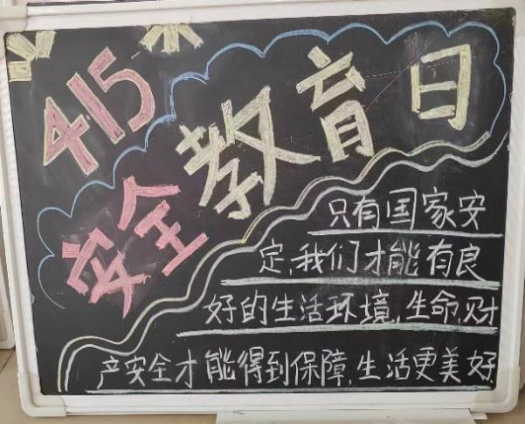 415
安全教育日
只有国家安
定,我们才能有良
好的生活环境,生命财
产安全才能得到保障,生活更美好